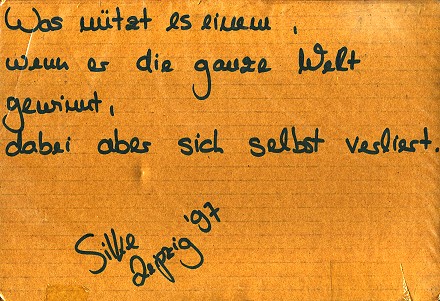 Was nützt es einem,
wenn er die ganze Welt
gewinnt,
dabei aber sich selbst verliert.
Silke
Leipzig '97